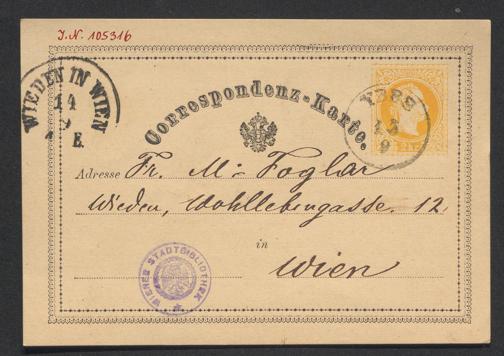 I.N. 105316
WIEDEN IN WIEN
14
9
E.
Correspondenz-Karte.
YBBS
13
9
Adresse Fr. M: Foglar
Wieden, Wohllebengasse. 12.
in
Wien
WIENER STADTBIBLIOTHEK